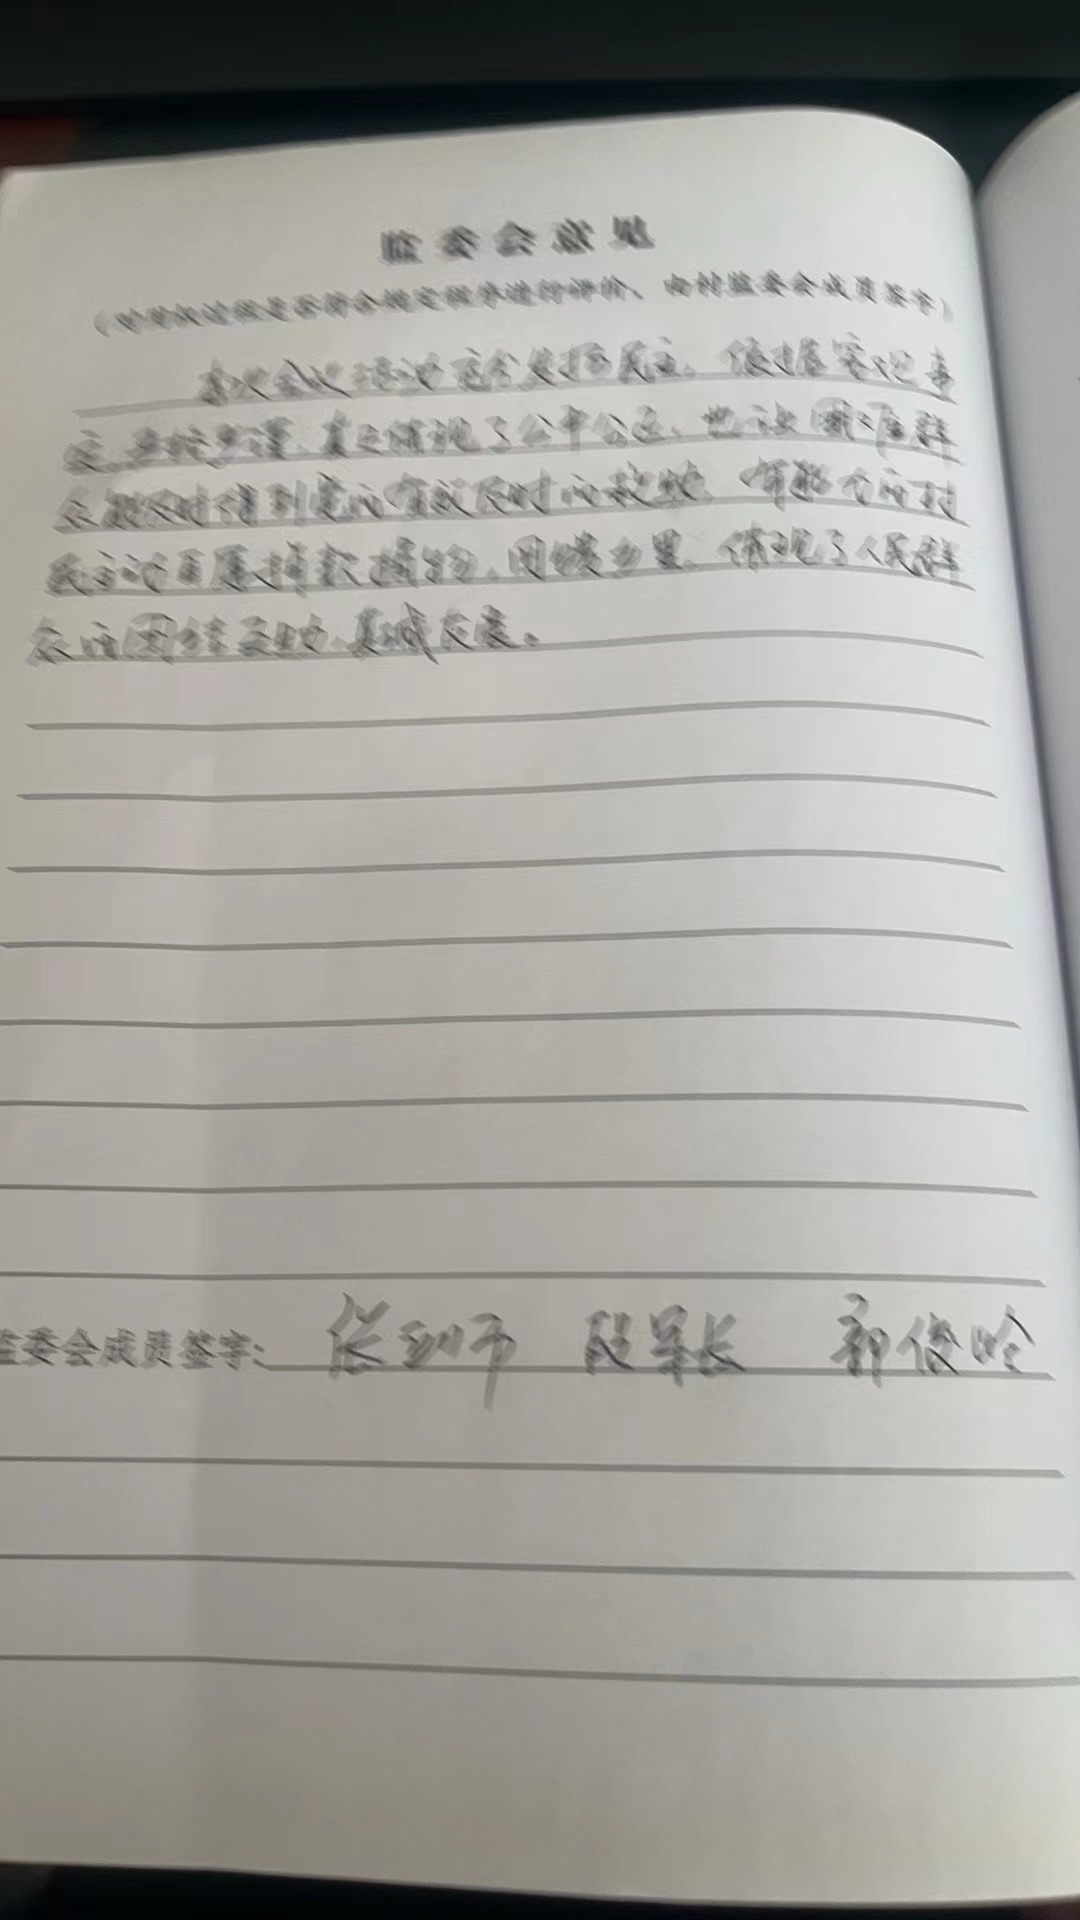 监委会意见
(对议过程是否符合规定程序进行评价、由村监委会成员签字)
本次会议活动充分发扬民主、依据客观事
实、真正体现了公平公正、也让困难群
众能及时得到党的有效及时的救助、有能力的村
民主动自愿捐款捐物、回馈乡里、体现了人民群
众的团结互助、真诚友爱。
监委会成员签字: 张 段军长 郭俊